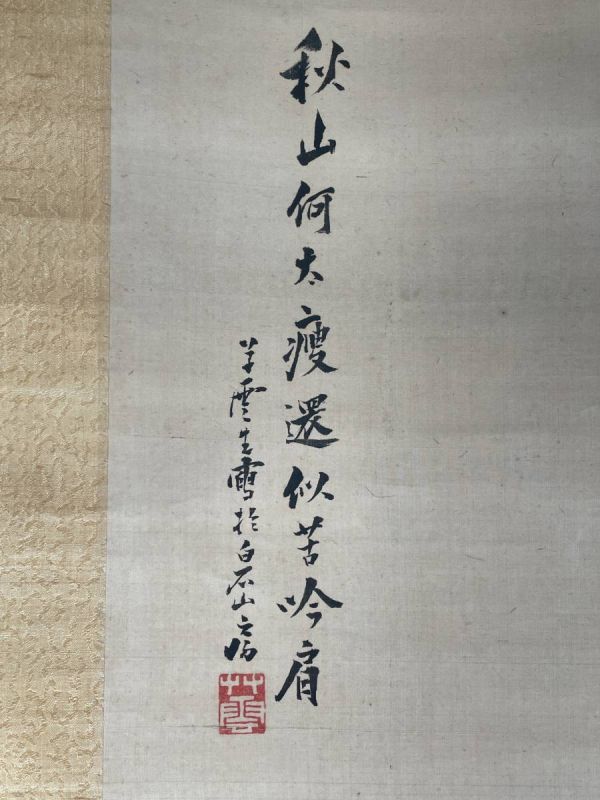 秋山何太瘦還似苦吟肩
草雲生寫於白石山房
艸雲